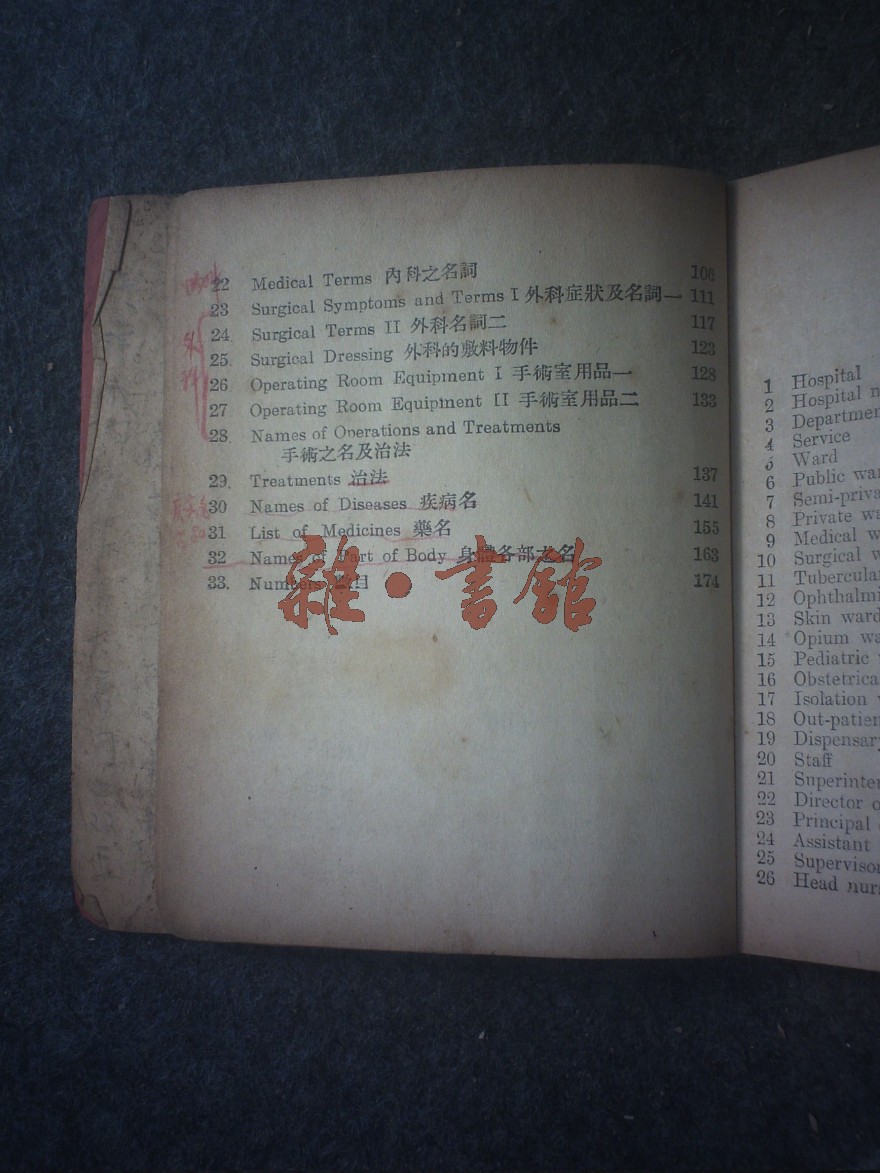 22 Medical Terms 內科之名詞 106
23 Surgical Symptoms and Terms I 外科症狀及名詞一 111
24. Surgical Terms II 外科名詞二 117
25. Surgical Dressing 外科的敷料物件 123
26 Operating Room Equipment I 手術室用品一 128
27 Operating Room Equipment II 手術室用品二 133
28. Names of Operations and Treatments
手術之名及治法
29. Treatments 治法 137
30 Names of Diseases 疾病名 141
31 List of Medicines 藥名 155
32 Names of Part of Body 身體各部之名 163
33. Numbers 目 174
雜·書館
外科
1 Hospital
2 Hospital n
3 Departmen
4 Service
5 Ward
6 Public wa
7 Semi-priva
8 Private wa
9 Medical w
10 Surgical w
11 Tubercula
12 Ophthalmi
13 Skin ward
14 Opium wa
15 Pediatric
16 Obstetrica
17 Isolation
18 Out-patien
19 Dispensary
20 Staff
21 Superinte
22 Director o
23 Principal
24 Assistant
25 Supervisor
26 Head nurs